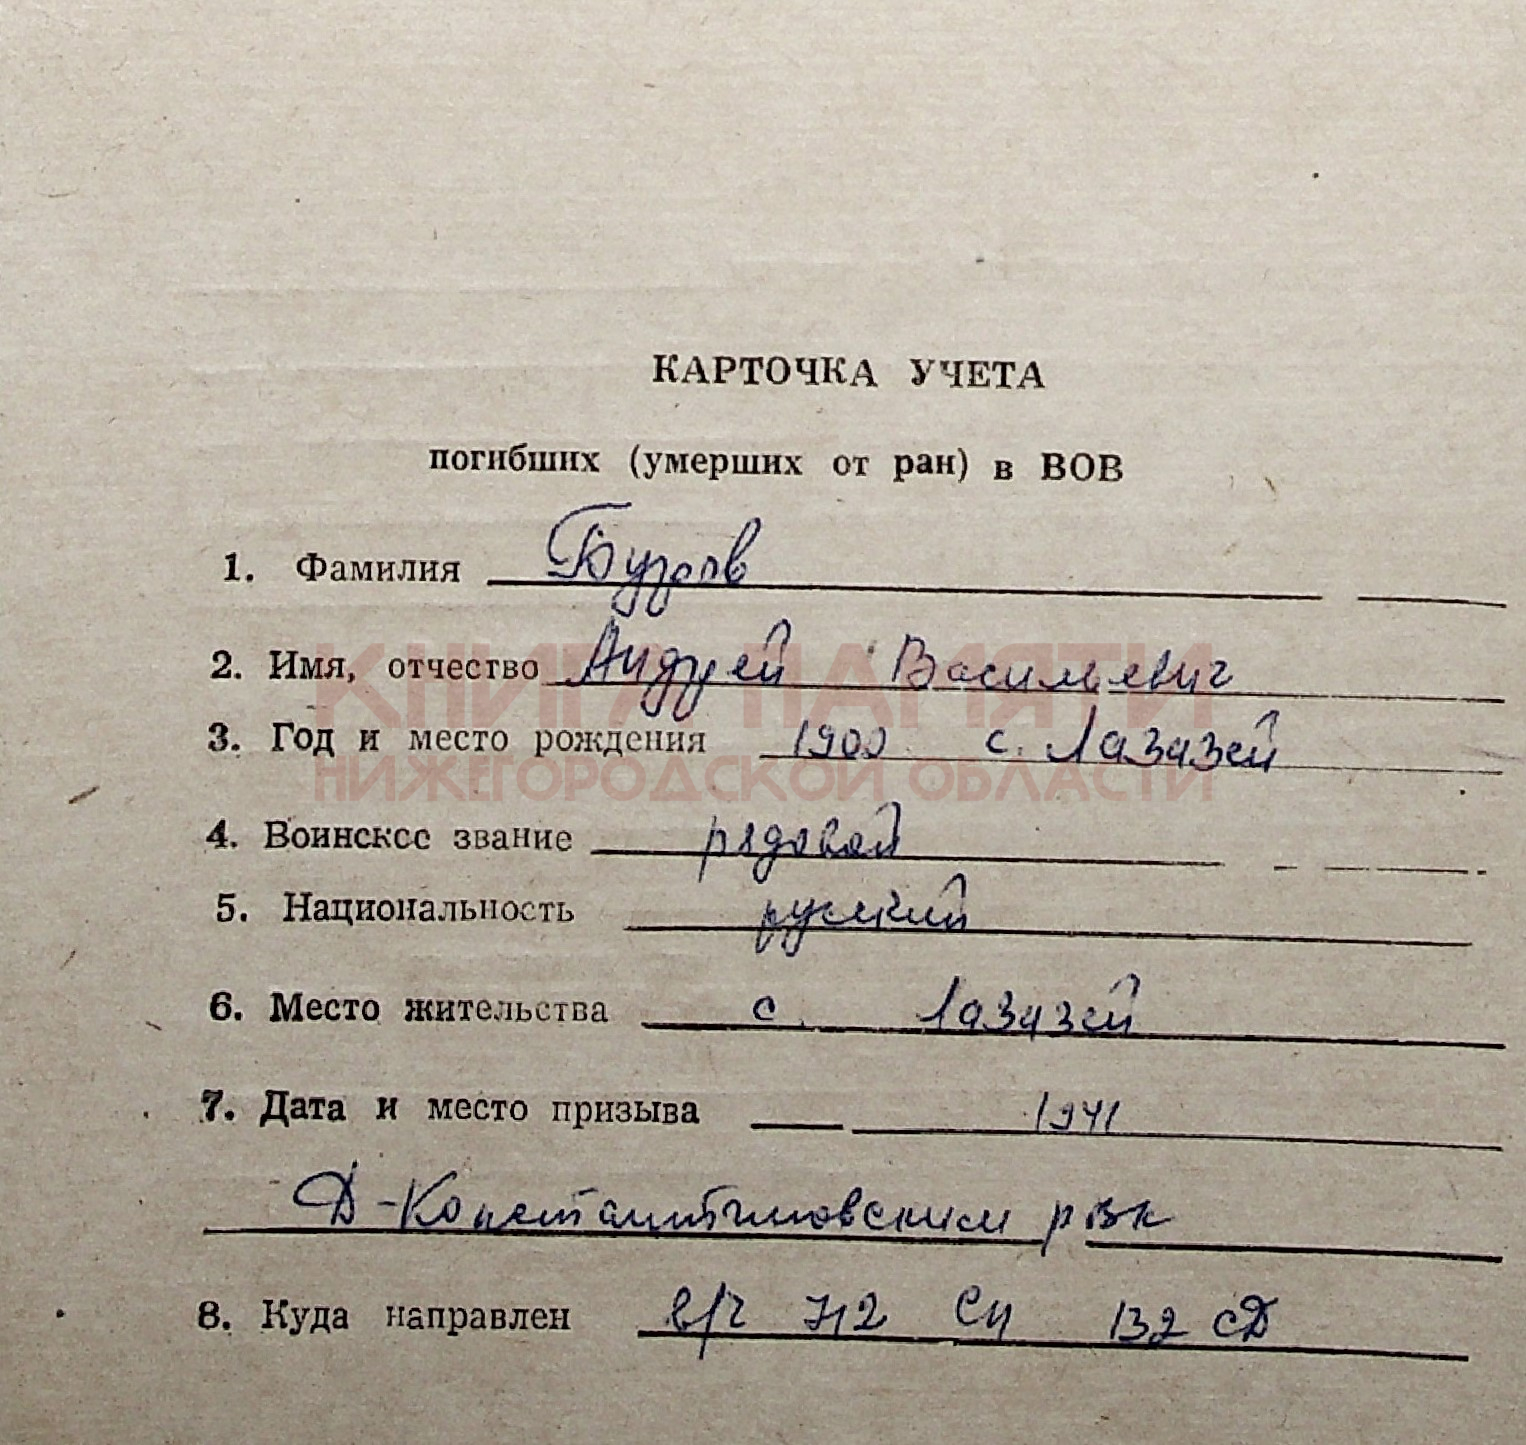 КАРТОЧКА УЧЕТА
погибших (умерших от ран) в ВОВ
1. Фамилия Бугров
2. Имя, отчество Андрей Васильевич
КНИГА ПАМЯТИ
3. Год и место рождения 1900 с. Лазазей
НИЖЕГОРОДСКОЙ ОБЛАСТИ
4. Воинское звание рядовой
5. Национальность русский
6. Место жительства с. Лазазей
7. Дата и место призыва 1941
Д-Константиновским рвк
8. Куда направлен в/ч 712 СП 132 сД